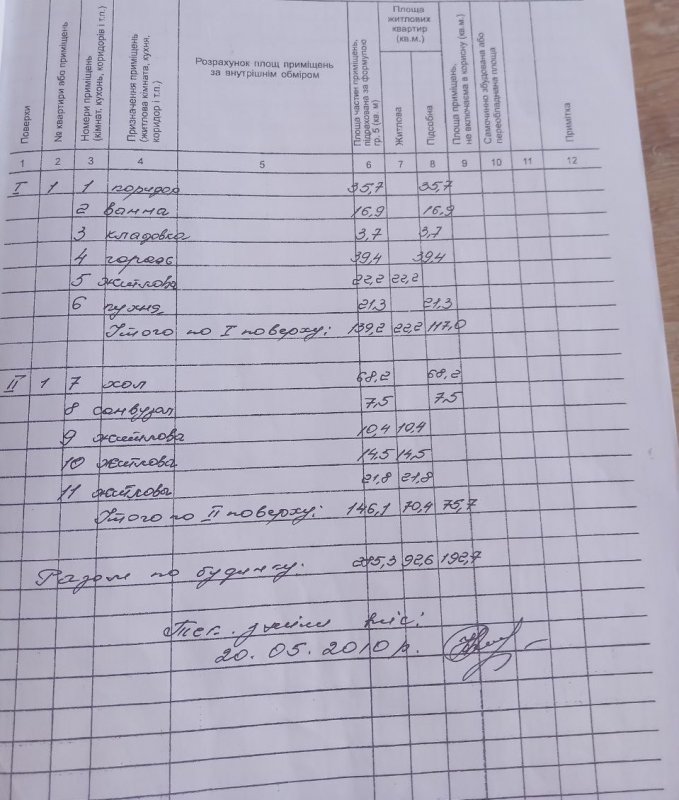 Поверхи
№ квартири або приміщень
Номери приміщень (кімнат, кухонь, коридорів і т.п.)
Призначення приміщень (житлова кімната, кухня, коридор і т.п.)
Розрахунок площ приміщень за внутрішнім обміром
Площа частин приміщень, підрахована за формулою гр. 5 (кв. м)
Площа житлових квартир (кв.м.)
Житлова
Підсобна
Площа приміщень, не включаєма в корисну (кв.м.)
Самочинно збудована або переобладнана площа
Примітка
1 2 3 4 5 6 7 8 9 10 11 12
I 1 1 коридор 35,7 35,7
2 ванна 16,9 16,9
3 кладовка 3,7 3,7
4 гараж 39,4 39,4
5 житлова 22,2 22,2
6 кухня 21,3 21,3
Итого по I поверху: 139,2 22,2 117,0
II 1 7 хол 68,2 68,2
8 санвузол 7,5 7,5
9 житлова 10,4 10,4
10 житлова 14,5 14,5
11 житлова 21,8 21,8
Итого по II поверху: 146,1 70,4 75,7
Разом по будинку: 285,3 92,6 192,7
20.05.2010 р.